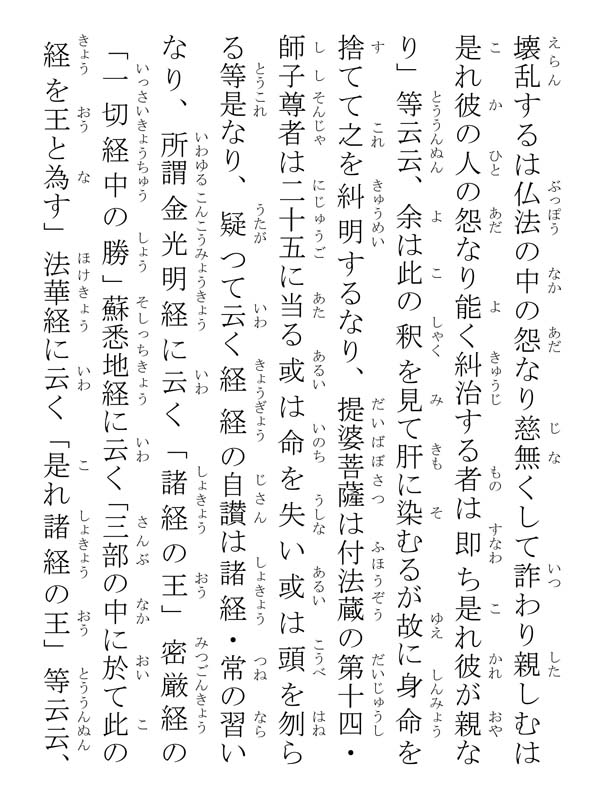 壊乱するは仏法の中の怨なり慈無くして詐わり親しむは
是れ彼の人の怨なり能く糾治する者は即ち是れ彼が親な
り」等云云、余は此の釈を見て肝に染むるが故に身命を
捨てて之を糾明するなり、提婆菩薩は付法蔵の第十四・
師子尊者は二十五に当る或は命を失い或は頭を刎ら
る等是なり、疑つて云く経経の自讃は諸経・常の習い
なり、所謂金光明経に云く「諸経の王」密厳経の
「一切経中の勝」蘇悉地経に云く「三部の中に於て此の
経を王と為す」法華経に云く「是れ諸経の王」等云云、